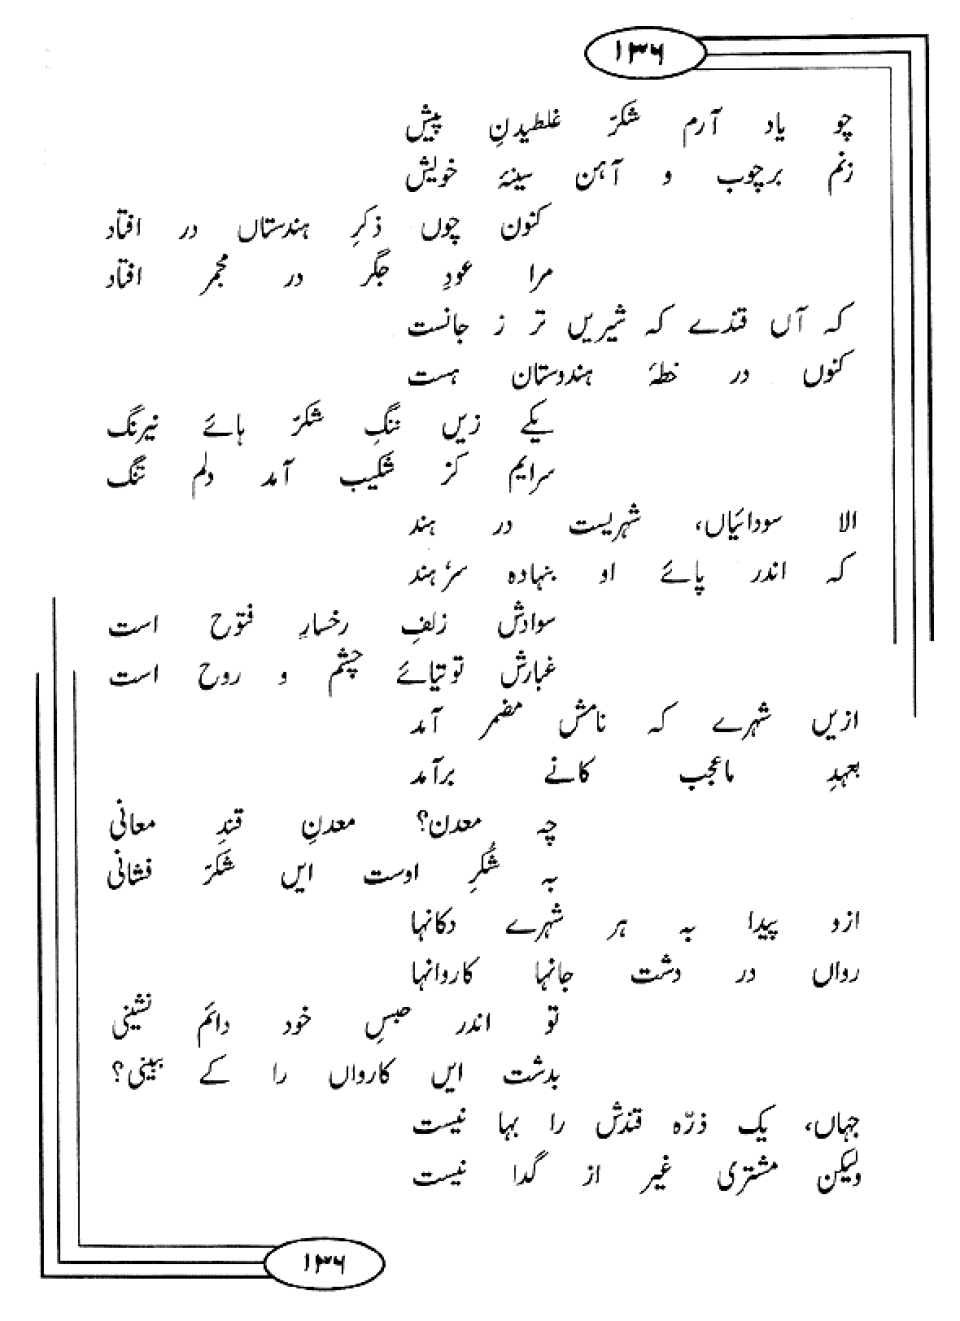 ۱۳۶
چو یاد آرم شکرّ غلطیدنِ پیش
زنم برچوب و آہن سینۂ خویش
کنون چوں ذکرِ ہندستاں در افتاد
مرا عودِ جگر در مجمر افتاد
کہ آں قندے کہ شیریں تر ز جانست
کنوں در خطۂ ہندوستان ہست
یکے زیں تنگِ شکرّ ہائے نیرنگ
سرایم کز شکیب آمد دلم تنگ
الا سودائیاں، شہریست در ہند
کہ اندر پائے او بنہادہ سر ہند
سوادش زلفِ رخسارِ فتوح است
غبارش توتیائے چشم و روح است
ازیں شہرے کہ نامش مضمر آمد
بعہدِ ماعجب کانے برآمد
چہ معدن؟ معدنِ قندِ معانی
بہ شُکرِ اوست ایں شکَرّ فشانی
ازو پیدا بہ ہر شہرے دکانہا
رواں در دشت جانہا کاروانہا
تو اندر حبسِ خود دائم نشینی
بدشت ایں کارواں را کے ببینی؟
جہاں، یک ذرّہ قندش را بہا نیست
ولیکن مشتری غیر از گدا نیست
۱۳۶